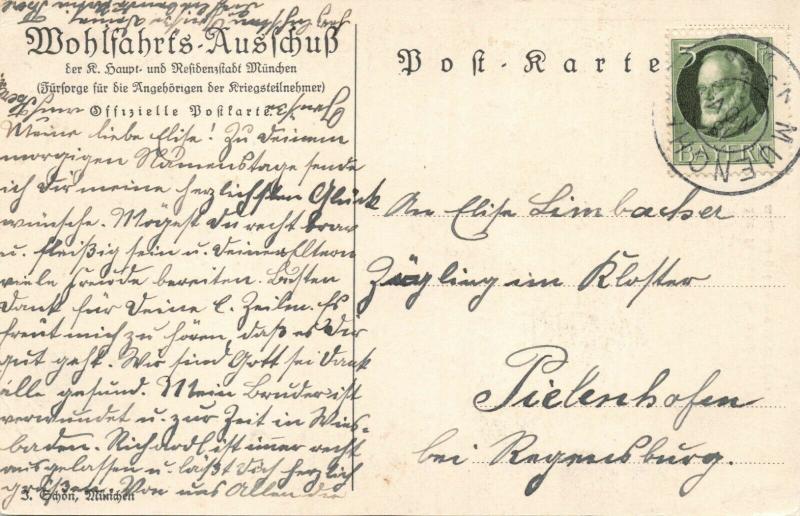 Wohlfahrts-Ausschuß
der K. Haupt- und Residenzstadt München
(Fürsorge für die Angehörigen der Kriegsteilnehmer)
Offizielle Postkarte
Meine liebe Elise! Zu Deinem
morgigen Namenstage sende
ich Dir meine herzlichsten Glück
wünsche. Mögest Du recht brav
u. fleißig sein u. Deinen Eltern
viele Freude bereiten. Besten
Dank für Deine l. Zeilen. Es
freut mich zu hören, daß es Dir
gut geht. Wir sind Gott sei Dank
alle gesund. Mein Bruder ist
verwundet u. zur Zeit in Wies-
baden. Richardl ist immer recht
ausgelassen u. läßt Dich herzlich
grüßen. Von uns Allen die
J. Schön, München
Post-Karte
5
BAYERN
MUENCHEN
NOV
An Elise Limbacher
Zögling im Kloster
Pielenhofen
bei Regensburg.